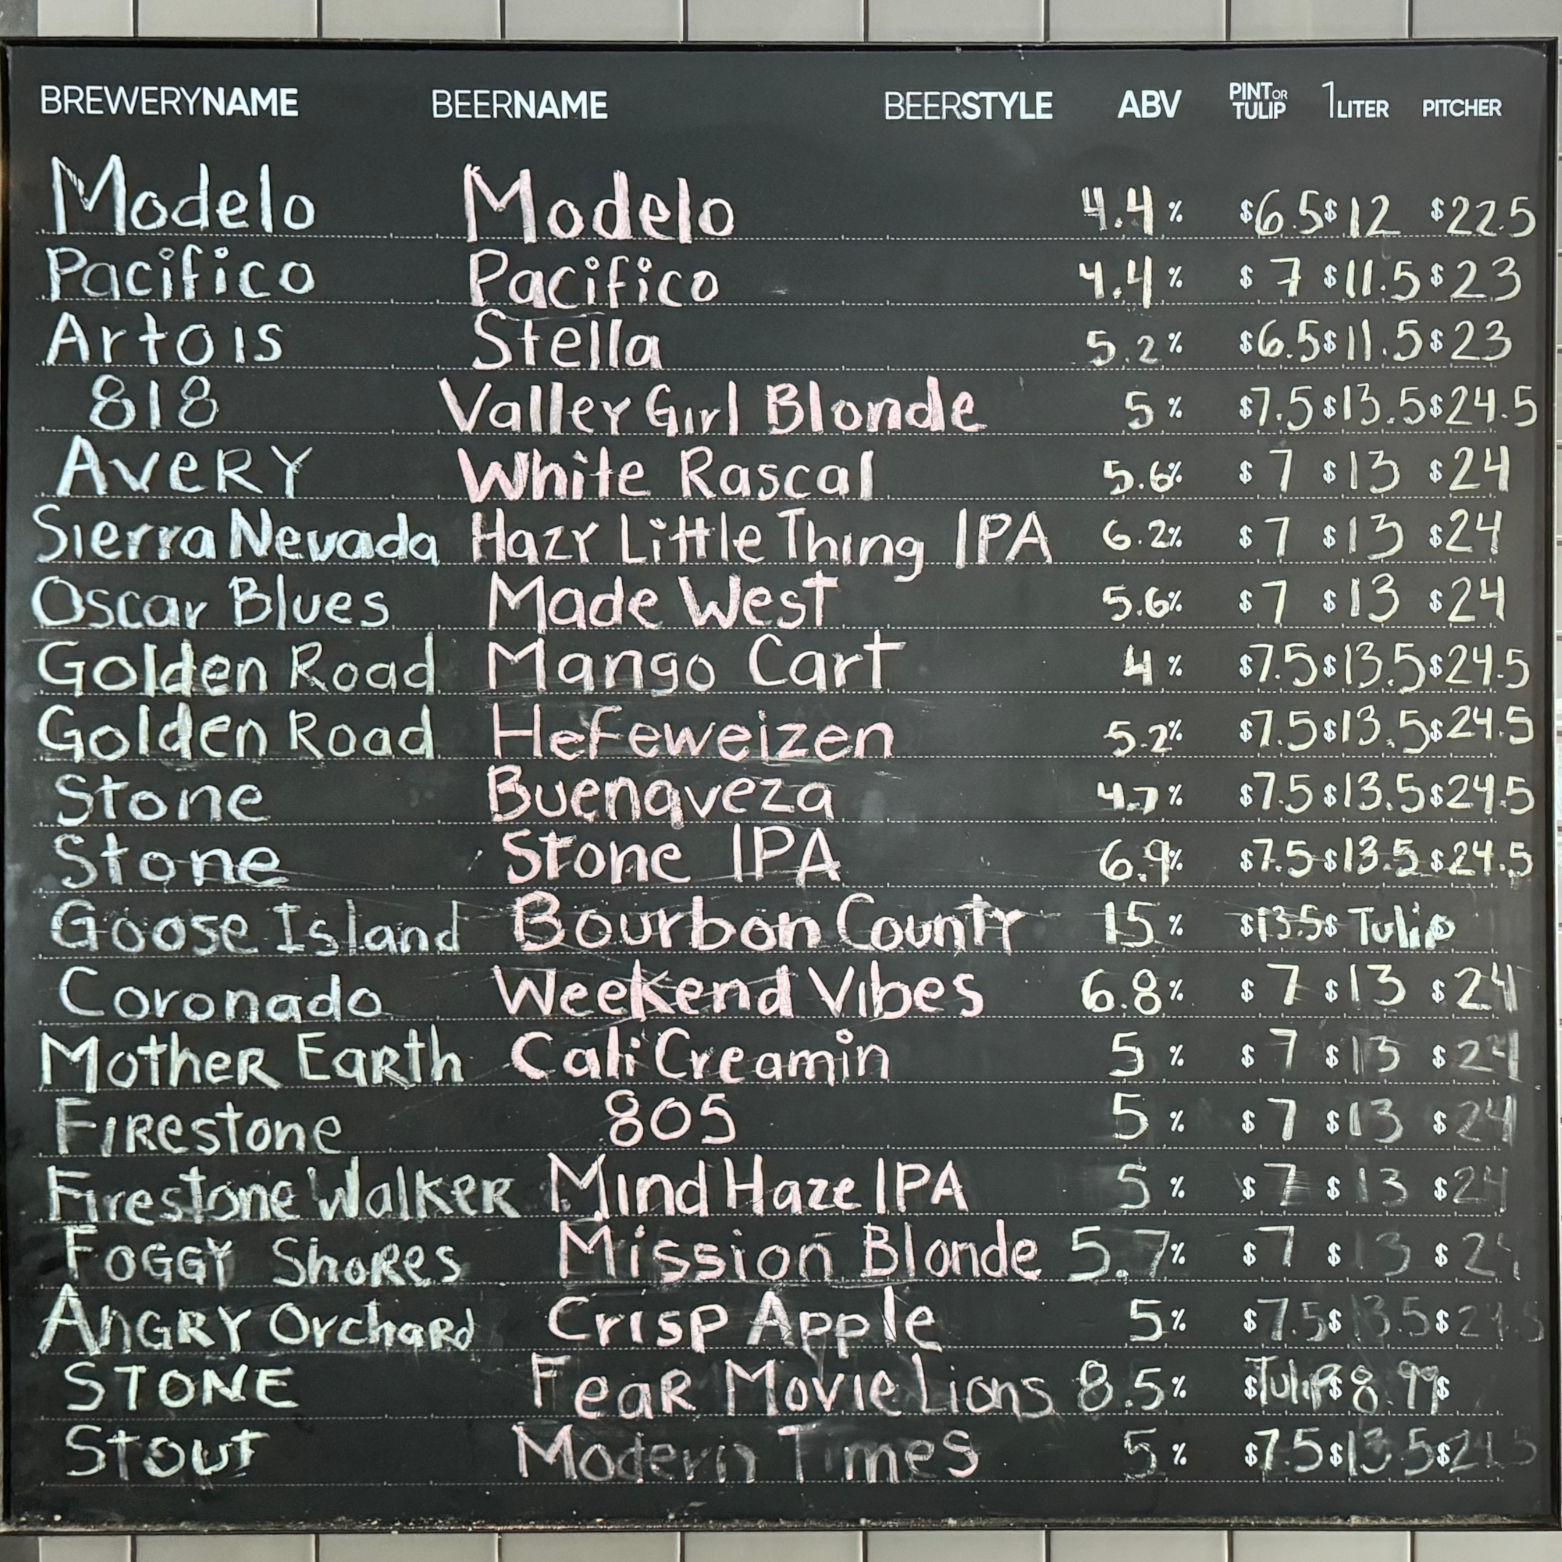 BREWERYNAME BEERNAME BEERSTYLE ABV PINT OR TULIP 1 LITER PITCHER
Modelo Modelo 4.4% $6.5 $12 $22.5
Pacifico Pacifico 4.4% $7 $11.5 $23
Artois Stella 5.2% $6.5 $11.5 $23
818 Valley Girl Blonde 5% $7.5 $13.5 $24.5
AVERY White Rascal 5.6% $7 $13 $24
Sierra Nevada Hazy Little Thing IPA 6.2% $7 $13 $24
Oscar Blues Made West 5.6% $7 $13 $24
Golden Road Mango Cart 4% $7.5 $13.5 $24.5
Golden Road Hefeweizen 5.2% $7.5 $13.5 $24.5
Stone Buenaveza 4.7% $7.5 $13.5 $24.5
Stone Stone IPA 6.9% $7.5 $13.5 $24.5
Goose Island Bourbon County 15% $13.5 $ Tulip
Coronado Weekend Vibes 6.8% $7 $13 $24
Mother Earth Cali Creamin 5% $7 $13 $24
Firestone 805 5% $7 $13 $24
Firestone Walker Mind Haze IPA 5% $7 $13 $24
Foggy Shores Mission Blonde 5.7% $7 $13 $2
Angry Orchard Crisp Apple 5% $7.5 $13.5 $24.5
STONE Fear Movie Lions 8.5% $Tulip $8.99 $
Stout Modern Times 5% $7.5 $13.5 $24.5